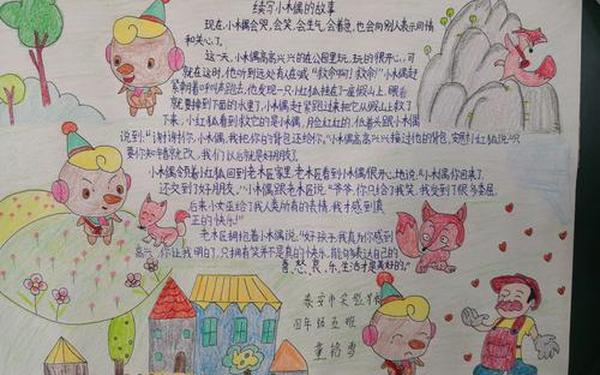 续写小木偶的故事
现在,小木偶会哭,会笑,会生气,会着急,也会向别人表示同情
和关心了。
这一天,小木偶高高兴兴的在公园里玩,玩的很开心,可
就在这时,他听到远处有人喊"救命啊!救命!"小木偶赶
紧朝着呼声跑去,他发现一只小红狐挂在了一座假山上,眼看
就要掉到下面的水里了,小木偶赶紧跑过来把它从假山上救了
下来,小红狐看到救它的是小木偶,脸红红的,低着头跟小木偶
说到:"谢谢你,小木偶,我把你的背包还给你。"小木偶高高兴兴接过他的背包,安慰小红狐说:"只
要你知错就改,我们以后就是好朋友了。
小木偶领着小红狐回到老木匠家里,老木匠看到小木偶很开心地说:"小木偶你回来了,
还交到了好朋友。"小木偶跟老木匠说:"爷爷,你只给了我笑,我受到了很多委屈,
后来小女巫给了我人类所有的表情,我才感到真
正的快乐!"
老木匠拥抱着小木偶说:"好孩子,我真为你感到
高兴,你让我明白了,只拥有笑并不是真的快乐,能够表达自己的
喜、怒、哀、乐,生活才是美好的。"
泰安市实验学校
四年级五班